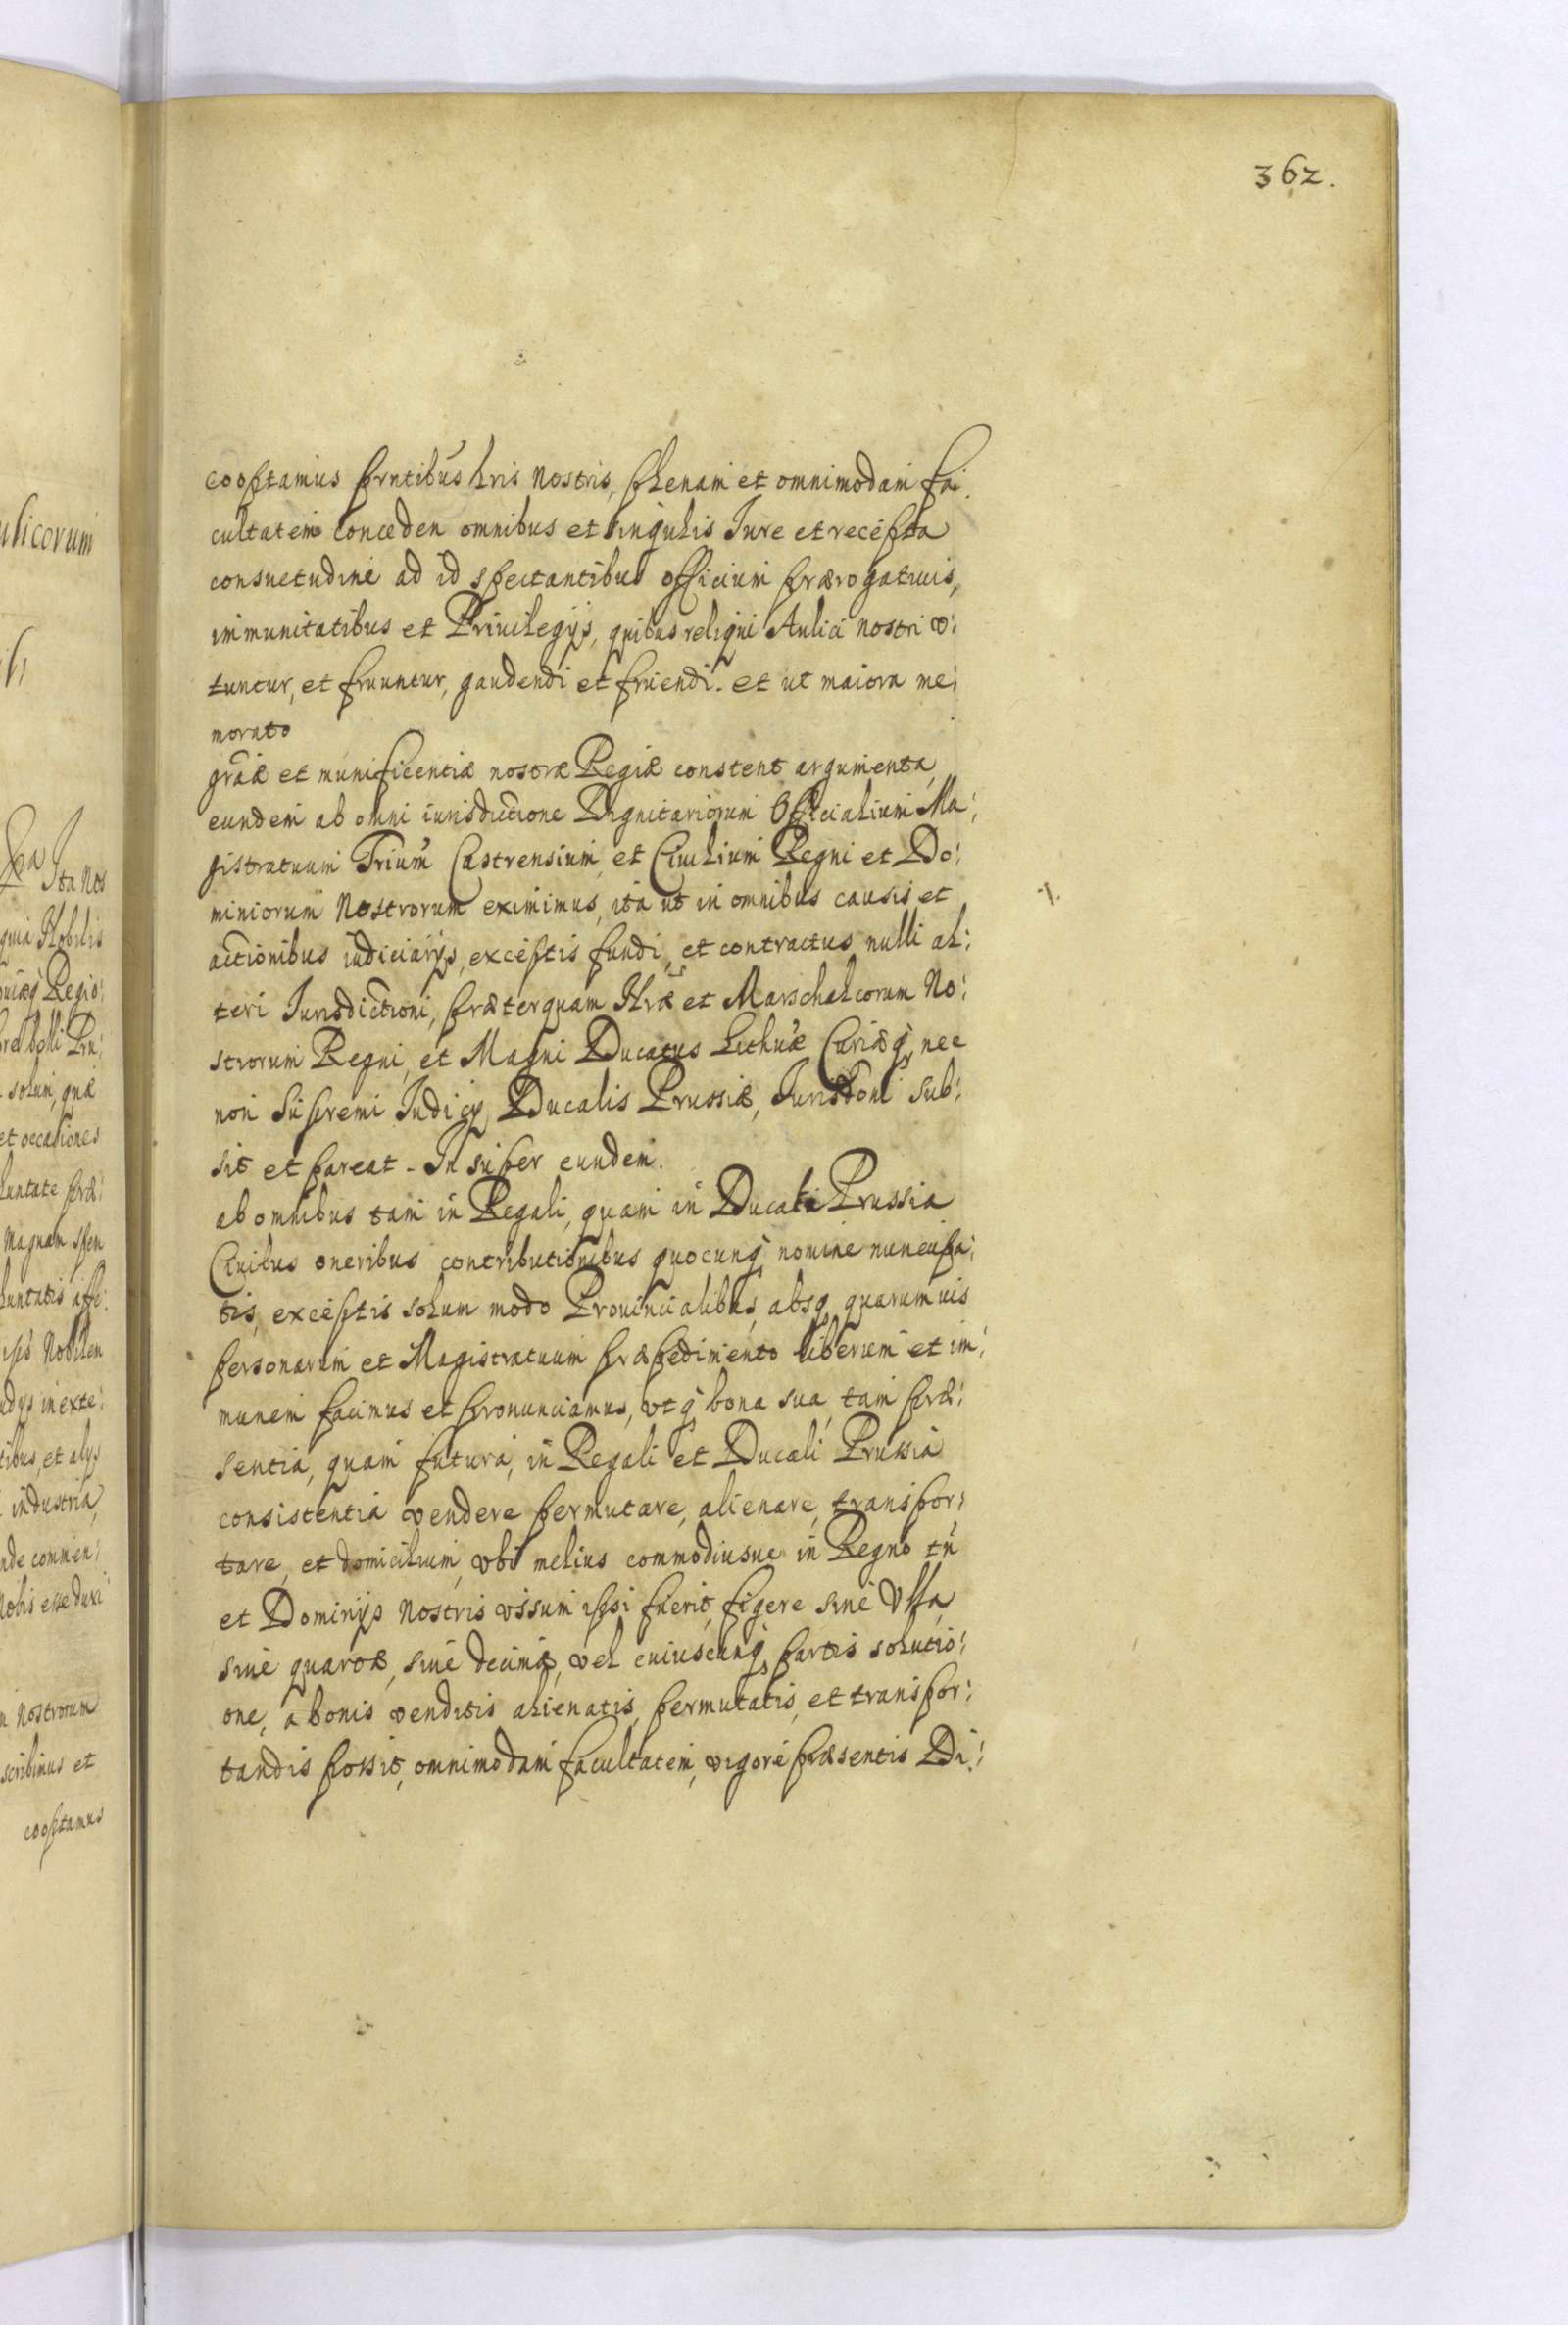 362.
cooptamus prntibus lris Nostris, plenam et omnimodam fa:
cultatem conceden omnibus et singulis Iure et recepta
consuetudine ad id spectantibus officium prærogativis,
immunitatibus et Privilegÿs, quibus reliqui Aulici nostri v:
tuntur, et fruuntur, gaudendi et fruendi. et ut maiora me:
morato
grãæ et munificentiæ nostræ Regiæ constent argumenta,
eundem ab omni iurisdictione Dignitariorum Officialium Ma:
gistratuum Trium Castrensium, et Civilium Regni et Do:
miniorum Nostrorum eximimus, ita ut in omnibus causis et
actionibus iudiciarÿs, exceptis fundi, et contractus nulli al:
teri Iurisdictioni, præterquam Nræ et Marschalcorum No:
strorum Regni, et Magni Ducatus Lithuæ Curiæq, nec
non Supremi Iudicÿ Ducalis Prussiæ, Iurisdoni sub:
sit et pareat. Insuper eundem.
ab omnibus tam in Regali, quam in Ducali Prussia
Civibus oneribus contributionibus quocunq nomine nuncupa:
tis, exceptis solum modo Provincialibus, absq quarumvis
personarum et Magistratuum præpedimento liberum et im:
munem facimus et pronunciamus, vtq bona sua, tam præ:
sentia, quam futura, in Regali et Ducali Prussia
consistentia vendere permutare, alienare, transpor:
tare, et domicilium, vbi melius commodiusue in Regno tn
et Dominÿs Nostris vissum ipsi fuerit, figere sine vlla,
sive quartæ, sive decimæ, vel cuiuscunq partis solutio:
one, a bonis venditis alienatis, permutatis, et transpor:
tandis possit, omnimodam facultatem, vigore præsentis Di:
ulicorum
Ita Nos
quia Nobilis
Regio:
belli Pru:
solum, quæ
et occasiones
luntate præ:
Magnam spen
luntatis affe:
ipse Nobilem
udÿs in exte:
tibus, et alÿs
industria,
nde commen:
Nobis esse duxi
m Nostrorum
scribimus et
cooptamus